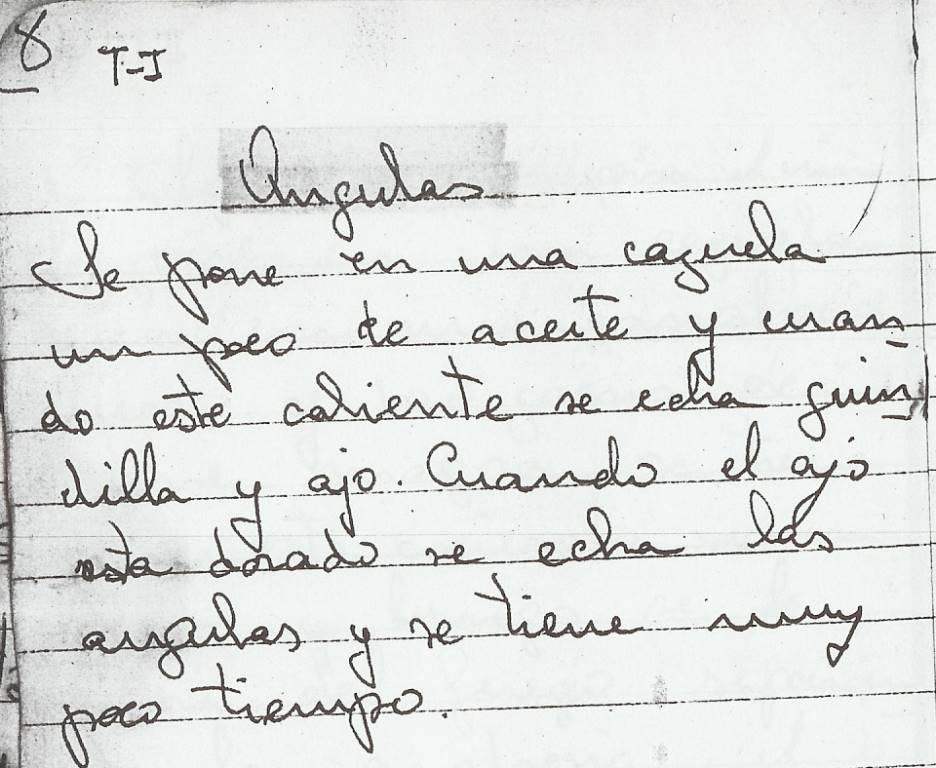 8 T-J
Angulas
Se pone en una cazuela
un poco de aceite y cuan
do este caliente se echa guin
dilla y ajo. Cuando el ajo
esta dorado se echa las
angulas y se tiene muy
poco tiempo.